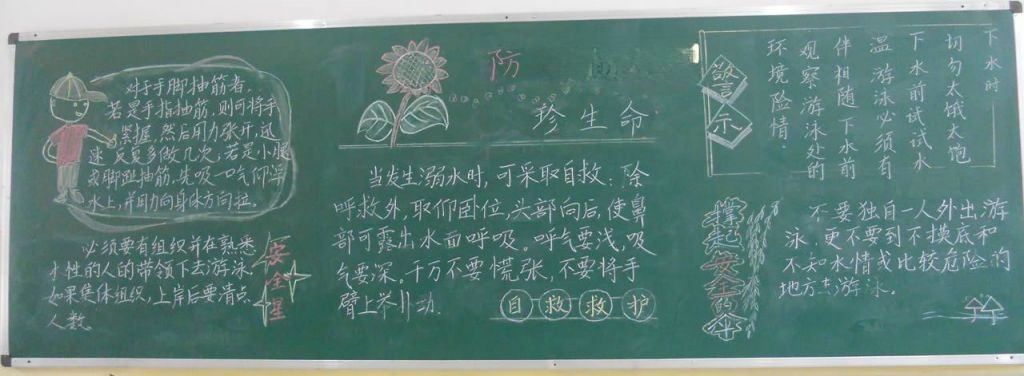 对于手脚抽筋者,
若是手指抽筋,则可将手
紧握,然后用力张开,迅
速反复多做几次,若是小腿
或脚趾抽筋,先吸一口气仰浮
水上,并用力向身体方向拉。
必须要有组织并在熟悉
水性的人的带领下去游泳,
如果集体组织,上岸后要清点
人数
安全星
防
珍生命
当发生溺水时,可采取自救:除
呼救外,取仰卧位,头部向后,使鼻
部可露出水面呼吸。呼气要浅,吸
气要深。千万不要慌张,不要将手
臂上举 动.
自救救护
警示
下水时
切勿太饿太饱
下水前试试水
温 游泳必须有
伴相随 下水前
观察游泳的处
环境险情.
撑起安全的伞
不要独自一人外出游
泳,更不要到不摸底和
不知水情或比较危险的
地方去游泳。